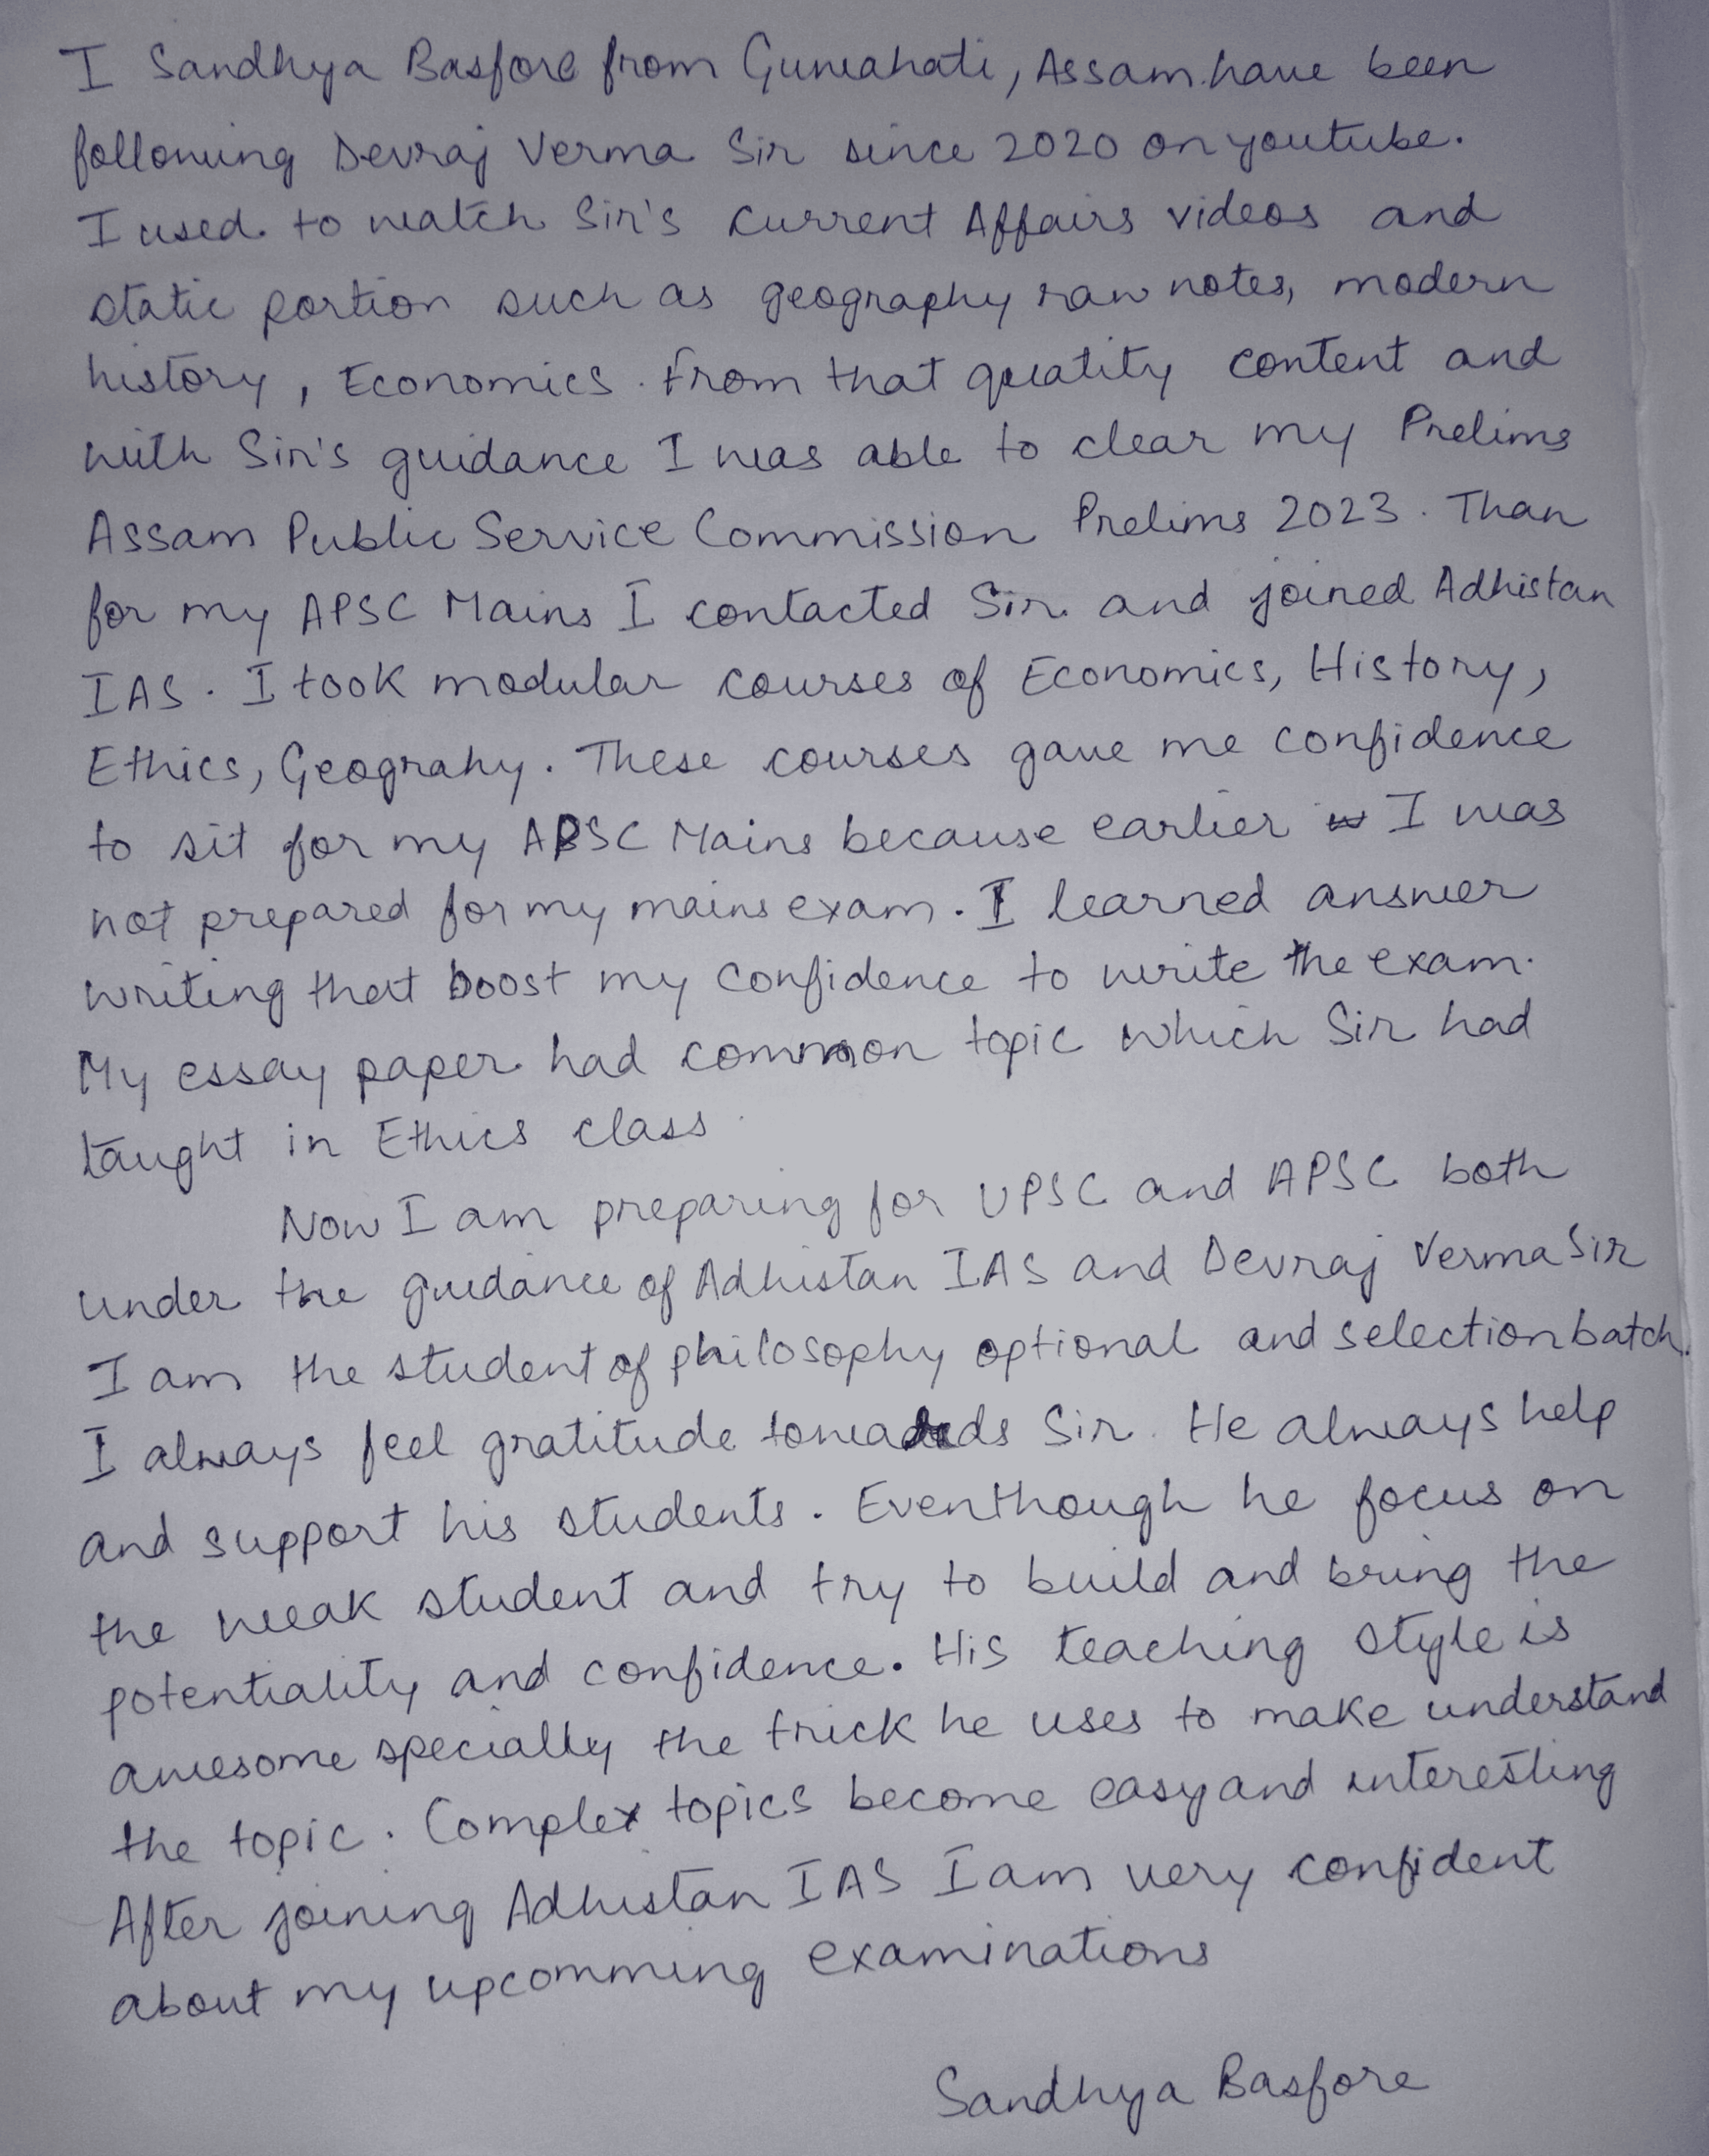 I Sandhya Basfore from Guwahati, Assam have been
following Devraj Verma Sir since 2020 on youtube.
I used to watch Sir's Current Affairs videos and
static portion such as geography raw notes, modern
history, Economics. From that quality content and
with Sir's guidance I was able to clear my Prelims
Assam Public Service Commission Prelims 2023. Than
for my APSC Mains I contacted Sir and joined Adhistan
IAS. I took modular courses of Economics, History,
Ethics, Geograhy. These courses gave me confidence
to sit for my APSC Mains because earlier I was
not prepared for my mains exam. I learned answer
writing that boost my confidence to write the exam.
My essay paper had common topic which Sir had
taught in Ethics class.
Now I am preparing for UPSC and APSC both
under the guidance of Adhistan IAS and Devraj Verma Sir
I am the student of philosophy optional and selection batch.
I always feel gratitude towards Sir. He always help
and support his students. Eventhough he focus on
the weak student and try to build and bring the
potentiality and confidence. His teaching style is
awesome specially the trick he uses to make understand
the topic. Complex topics become easy and interesting
After joining Adhistan IAS I am very confident
about my upcomming examinations
Sandhya Basfore